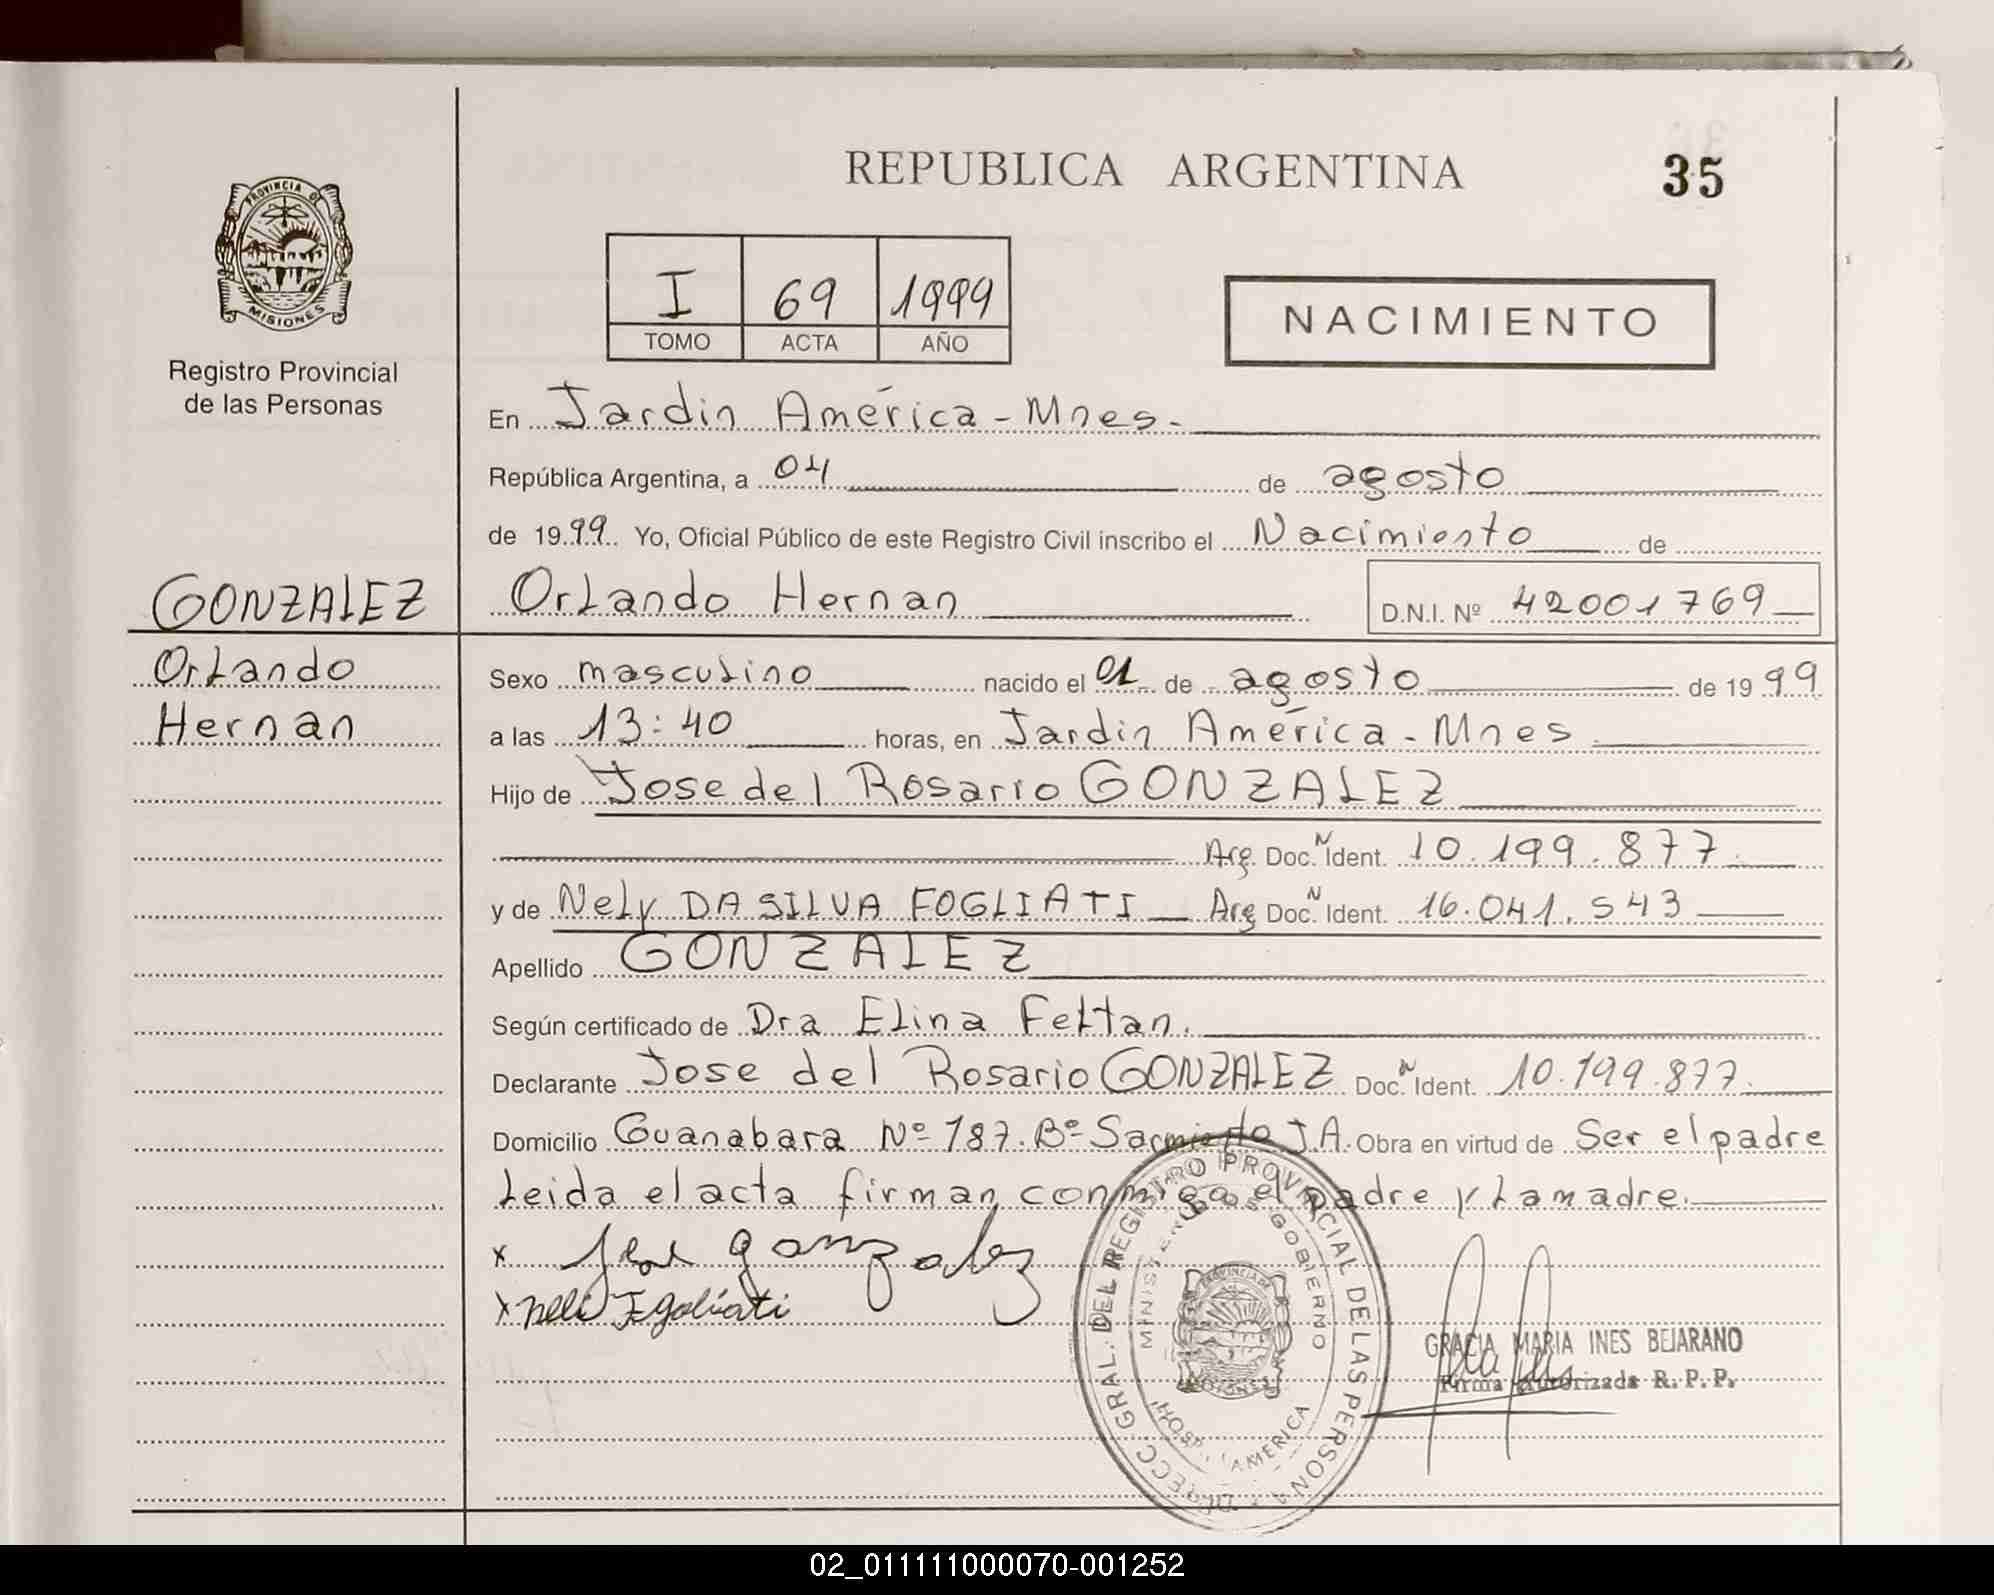 REPUBLICA ARGENTINA
35
PROVINCIA DE
MISIONES
Registro Provincial
de las Personas
I 69 1999
TOMO ACTA AÑO
NACIMIENTO
En Jardin América - Mnes.
República Argentina, a 04 de agosto
de 1999 Yo, Oficial Público de este Registro Civil inscribo el Nacimiento de
GONZALEZ
Orlando Hernan D.N.I. Nº 42001769
Orlando
Hernan
Sexo masculino nacido el 01 de agosto de 1999
a las 13:40 horas, en Jardin América - Mnes
Hijo de Jose del Rosario GONZALEZ
Arg. Doc. N Ident. 10.199.877
y de Nely DA SILVA FOGLIATI Arg Doc. N Ident. 16.041.543
Apellido GONZALEZ
Según certificado de Dra Elina Feltan.
Declarante Jose del Rosario GONZALEZ Doc. N Ident. 10.199.877
Domicilio Guanabara Nº 187. Bº Sarmiento J.A. Obra en virtud de Ser el padre
Leida el acta firman conmigo el padre y La madre.
x José gonzalez
x Neli Fgoliati
GRAL. DEL REGISTRO PROVINCIAL DE LAS PERSONA
MINISTERIO DE GOBIERNO
PROVINCIA DE
MISIONES
HOSP. AMERICA
GRACIA MARIA INES BEJARANO
Firma Autorizada R. P. P.
02_011111000070-001252